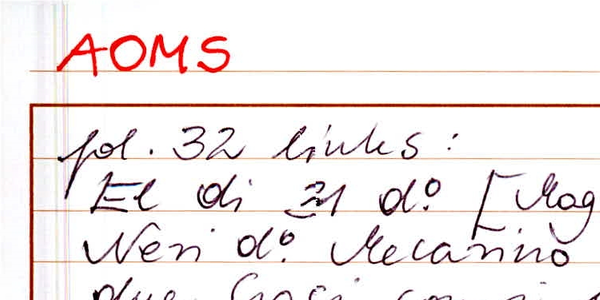 AOMS
fol. 32 links:
El di 21 d.º [Mag
Neri d.º Mecarino
due